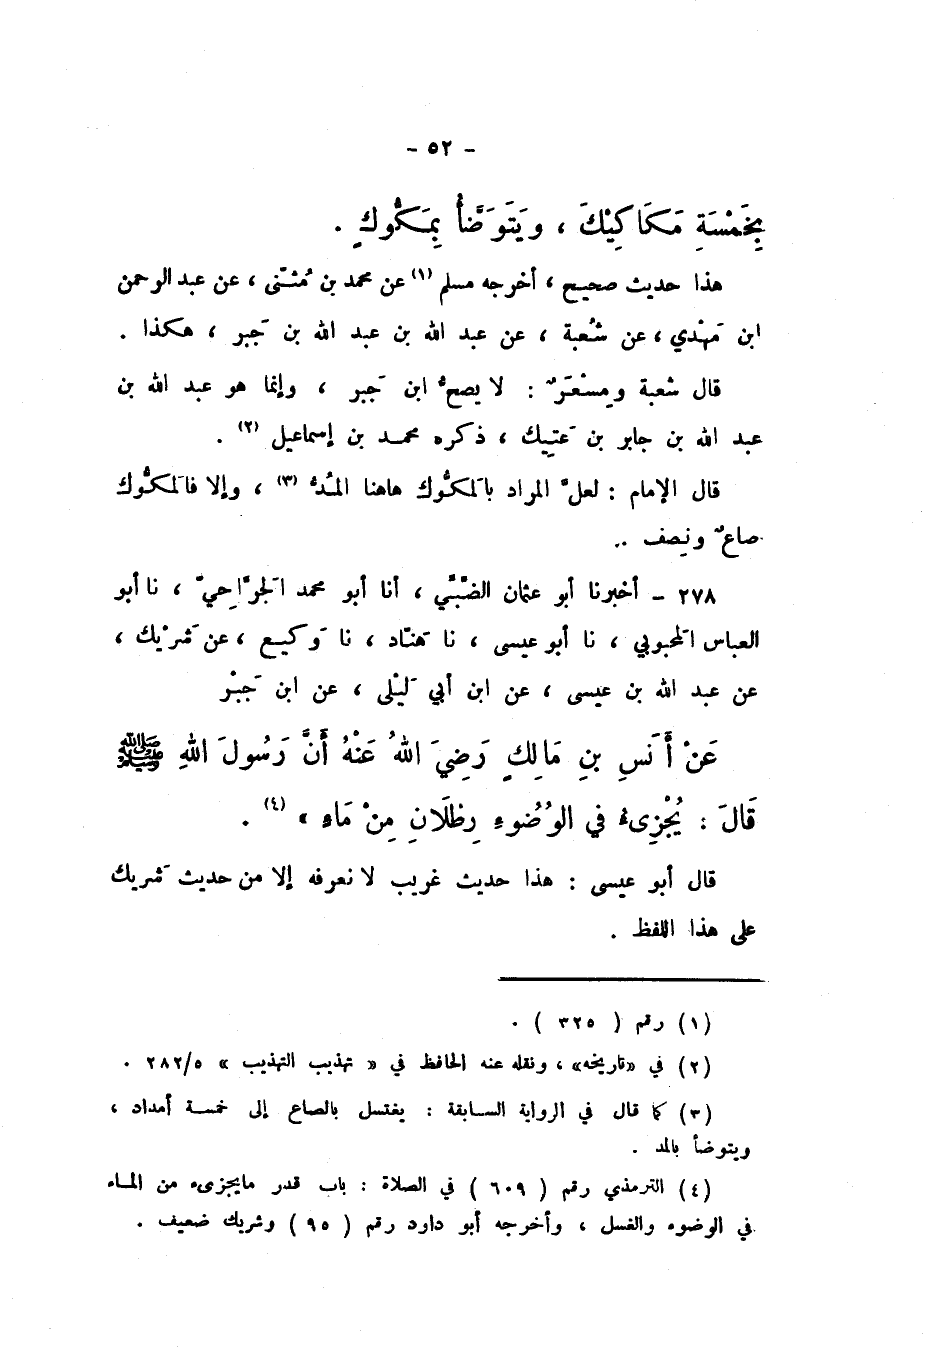 - ٥٢ -
بِخَمْسَةِ مَكَاكِيْكَ ، ويَتَوَضَّأُ بِمَكُّوكٍ .
هذا حديث صحيح ، أخرجه مسلم (١) عن محمد بن مُثنّى ، عن عبد الرحمن
ابن مَهْدي ، عن شُعبة ، عن عبد الله بن عبد الله بن جَبر ، هكذا .
قال شعبة ومِسْعَرٌ : لا يصحُّ ابن جَبر ، وإنما هو عبد الله بن
عبد الله بن جابر بن عَتِيك ، ذكره محمد بن إسماعيل (٢) .
قال الإمام : لعلَّ المراد بالمَكُّوك هاهنا المُدُّ (٣) ، وإلا فالمَكُّوك
صاعٌ ونِصف .
٢٧٨ - أخبرنا أبو عثمان الضبِّي ، أنا أبو محمد الجَرَّاحِيّ ، نا أبو
العباس المَحبوبي ، نا أبو عيسى ، نا هَنّاد ، نا وَكيع ، عن شَرِيْك ،
عن عبد الله بن عيسى ، عن ابن أبي لَيْلى ، عن ابن جَبْر
عَنْ أَنَسِ بنِ مَالِكٍ رَضِيَ اللهُ عَنْهُ أَنَّ رَسُولَ اللهِ ﷺ
قَالَ : يُجْزِىءُ في الوُضُوءِ رِطْلَانِ مِنْ مَاءٍ » (٤) .
قال أبو عيسى : هذا حديث غريب لا نعرفه إلا من حديث شَريك
على هذا اللفظ .
(١) رقم ( ٣٢٥ ) .
(٢) في «تاريخه» ، ونقله عنه الحافظ في « تهذيب التهذيب » ٢٨٢/٥ .
(٣) كما قال في الرواية السابقة : يغتسل بالصاع إلى خمسة أمداد ،
ويتوضأ بالمد .
(٤) الترمذي رقم ( ٦٠٩ ) في الصلاة : باب قدر مايجزىء من الماء
في الوضوء والغسل ، وأخرجه أبو داود رقم ( ٩٥ ) وشريك ضعيف .